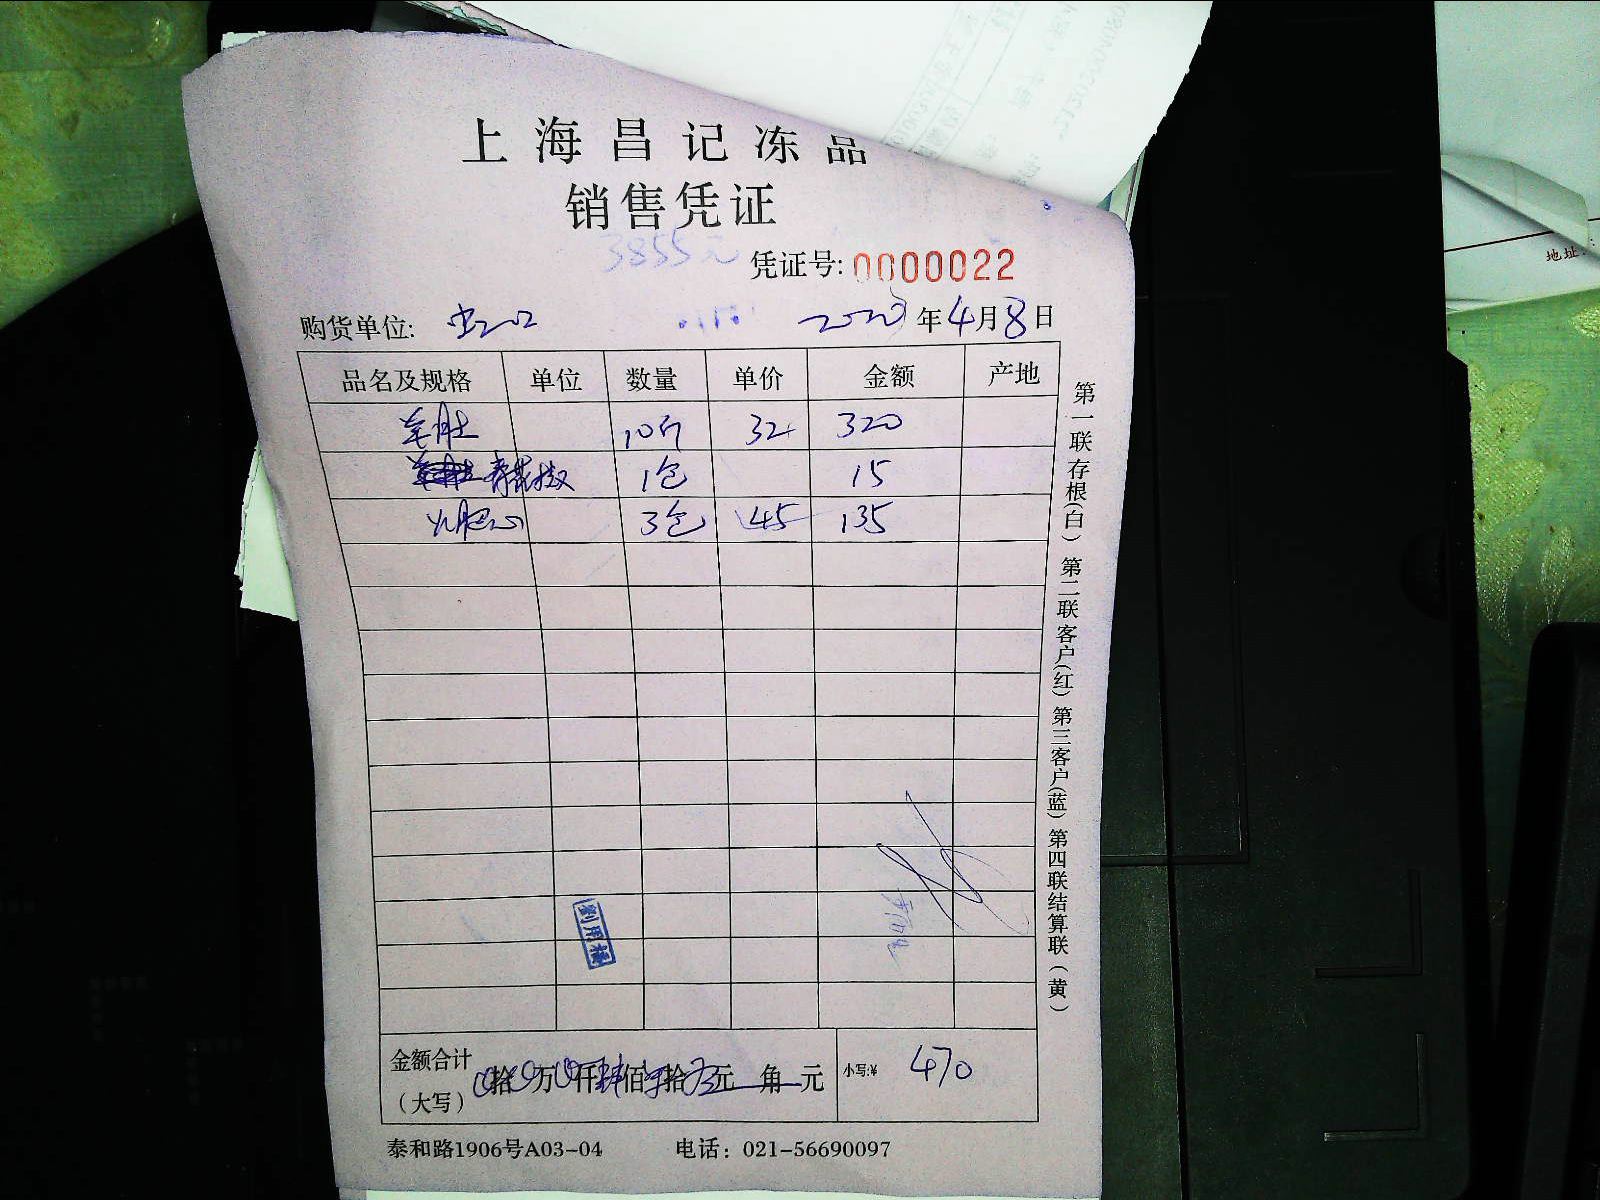 上海昌记冻品
销售凭证
3855元
凭证号: 0000022
购货单位: 2020年4月8日
品名及规格 单位 数量 单价 金额 产地
羊肚 10斤 32 320
青花椒 1包 15
3包 45 135
金额合计 拾 万 仟 佰 拾 元 角 元 小写:¥ 470
（大写）
泰和路1906号A03-04 电话: 021-56690097
第一联存根(白) 第二联客户(红) 第三客户(蓝) 第四联结算联(黄)
地址: